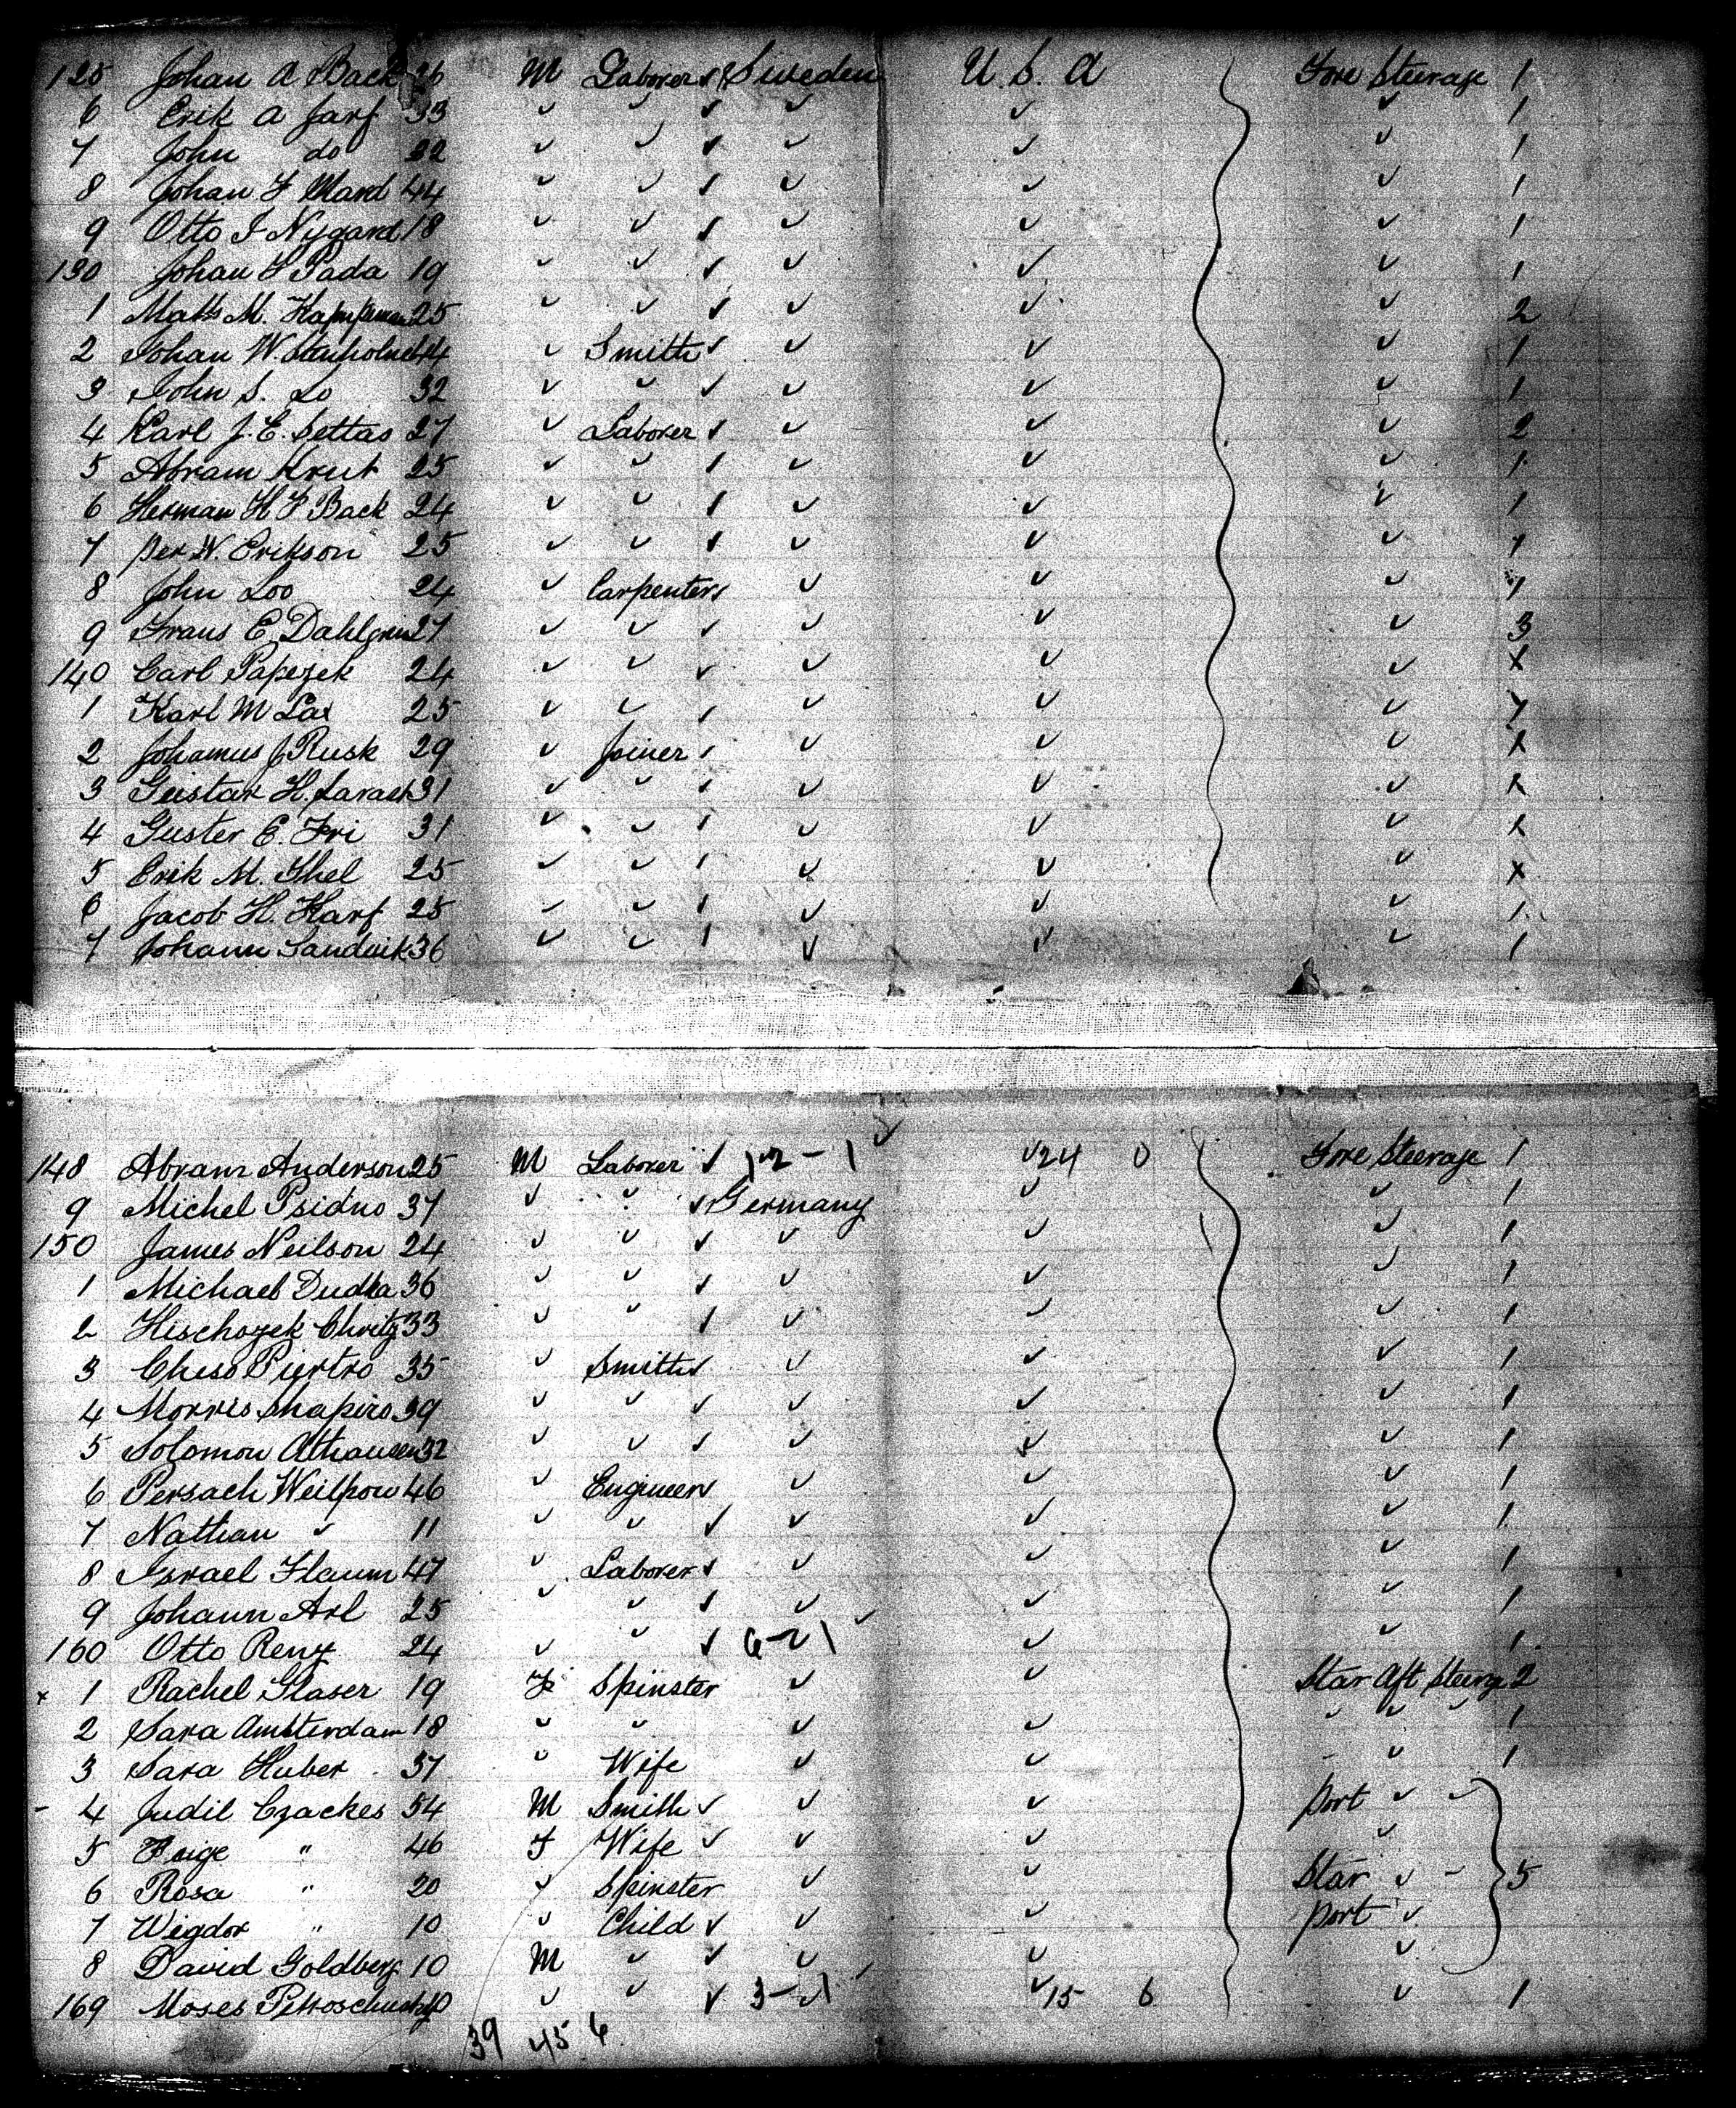 125 Johan A Back 26 M Laborer ✓ Sweden U. S. A Fore Steerage 1
6 Erik A Jarf 33 ✓ ✓ ✓ ✓ ✓ ✓ 1
7 John do 22 ✓ ✓ ✓ ✓ ✓ ✓ 1
8 Johan F Mard 44 ✓ ✓ ✓ ✓ ✓ ✓ 1
9 Otto I Nygard 18 ✓ ✓ ✓ ✓ ✓ ✓ 1
130 Johan F Pada 19 ✓ ✓ ✓ ✓ ✓ ✓ 1
1 Matts M. 25 ✓ ✓ ✓ ✓ ✓ ✓ 2
2 Johan W Stenholm 44 ✓ Smith ✓ ✓ ✓ ✓ 1
3 John S. Lo 32 ✓ ✓ ✓ ✓ ✓ ✓ 1
4 Karl J. E. Settas 27 ✓ Laborer ✓ ✓ ✓ ✓ 2
5 Abram Krut 25 ✓ ✓ ✓ ✓ ✓ ✓ 1
6 Herman H F Back 24 ✓ ✓ ✓ ✓ ✓ ✓ 1
7 Per W. Erikson 25 ✓ ✓ ✓ ✓ ✓ ✓ 1
8 John Loo 24 ✓ Carpenter ✓ ✓ ✓ ✓ 1
9 Frans E Dahlgren 27 ✓ ✓ ✓ ✓ ✓ ✓ 3
140 Carl Papezek 24 ✓ ✓ ✓ ✓ ✓ ✓ X
1 Karl M Lax 25 ✓ ✓ ✓ ✓ ✓ ✓
2 Johannus J Rusk 29 ✓ Joiner ✓ ✓ ✓ ✓ X
3 Gustav H. 31 ✓ ✓ ✓ ✓ ✓ ✓ X
4 Guster E. Fri 31 ✓ ✓ ✓ ✓ ✓ ✓ X
5 Erik M. Ghel 25 ✓ ✓ ✓ ✓ ✓ ✓ X
6 Jacob H. Karf 25 ✓ ✓ ✓ ✓ ✓ ✓ 1
7 Johann Sandvik 36 ✓ ✓ ✓ ✓ ✓ ✓ 1
148 Abram Anderson 25 M Laborer ✓ 12 - 1 ✓ 24 0 Fore Steerage 1
9 Michel Psidno 37 ✓ ✓ ✓ Germany ✓ ✓ 1
150 James Neilson 24 ✓ ✓ ✓ ✓ ✓ ✓ 1
1 Michael Dudka 36 ✓ ✓ ✓ ✓ ✓ ✓ 1
2 Hischozek Chritz 33 ✓ ✓ ✓ ✓ ✓ ✓ 1
3 Cheso Piertro 35 ✓ Smith ✓ ✓ ✓ ✓ 1
4 Morris Shapiro 39 ✓ ✓ ✓ ✓ ✓ ✓ 1
5 Solomon Athausen 32 ✓ ✓ ✓ ✓ ✓ ✓ 1
6 Persach Weilpon 46 ✓ Engineer ✓ ✓ ✓ ✓ 1
7 Nathan ✓ 11 ✓ ✓ ✓ ✓ ✓ ✓ 1
8 Israel Flaum 47 ✓ Laborer ✓ ✓ ✓ 1
9 Johann Arl 25 ✓ ✓ ✓ ✓ ✓ ✓ 1
160 Otto Renz 24 ✓ ✓ ✓ 6 - 1 ✓ ✓ 1
x 1 Rachel Glaser 19 F Spinster ✓ ✓ Star Aft Steerge 2
2 Sara Amsterdam 18 ✓ ✓ ✓ ✓ ✓ ✓ ✓ 1
3 Sara Huber 37 ✓ Wife ✓ ✓ ✓ 1
- 4 Judil Czackes 54 M Smith ✓ ✓ ✓ Port ✓ ✓
5 Feige " 46 F Wife ✓ ✓ ✓ ✓
6 Rosa " 20 ✓ Spinster ✓ ✓ Star ✓ - 5
7 Wigdor " 10 ✓ Child ✓ ✓ ✓ Port ✓
8 David Goldberg 10 M ✓ ✓ ✓ ✓ ✓
169 Moses ✓ ✓ ✓ 3 - 1 ✓ 15 6 ✓ 1
39 45 6